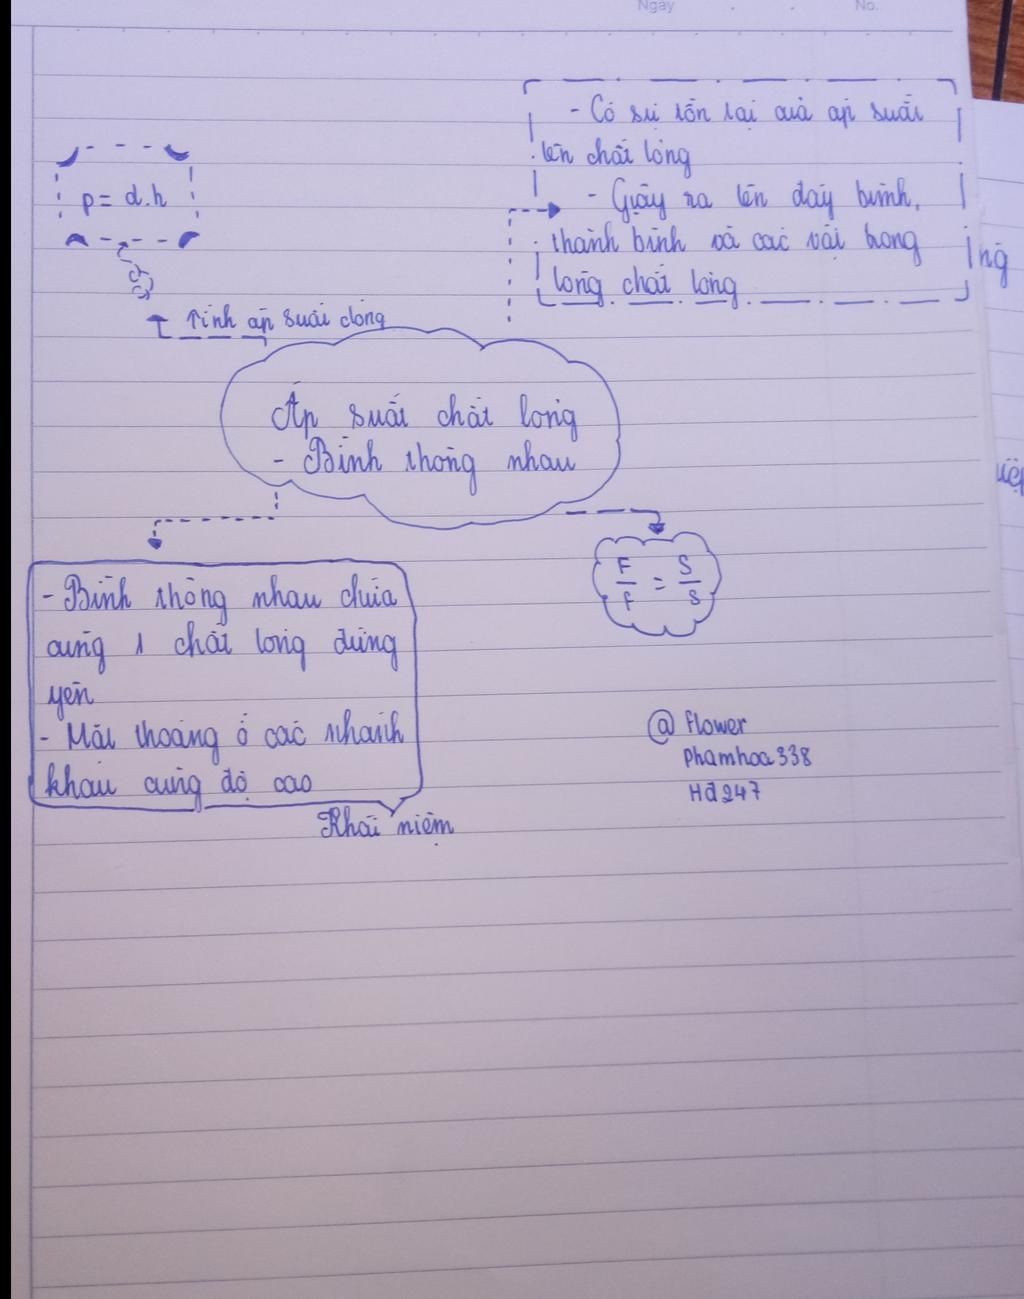 Ngày
No.
- Có sự tồn tại của áp suất
lên chất lỏng
- Gjây ra lên đáy bình,
thành bình và các vật trong
lòng chất lỏng
p = d.h
Tính áp suất chỏng
Áp suất chất lỏng
- Bình thông nhau
F/f = S/s
- Bình thông nhau chứa
cùng 1 chất lỏng đứng
yên
- Mặt thoáng ở các nhánh
khau cùng độ cao
Khái niệm
@ flower
Phamhoa338
Hđ247